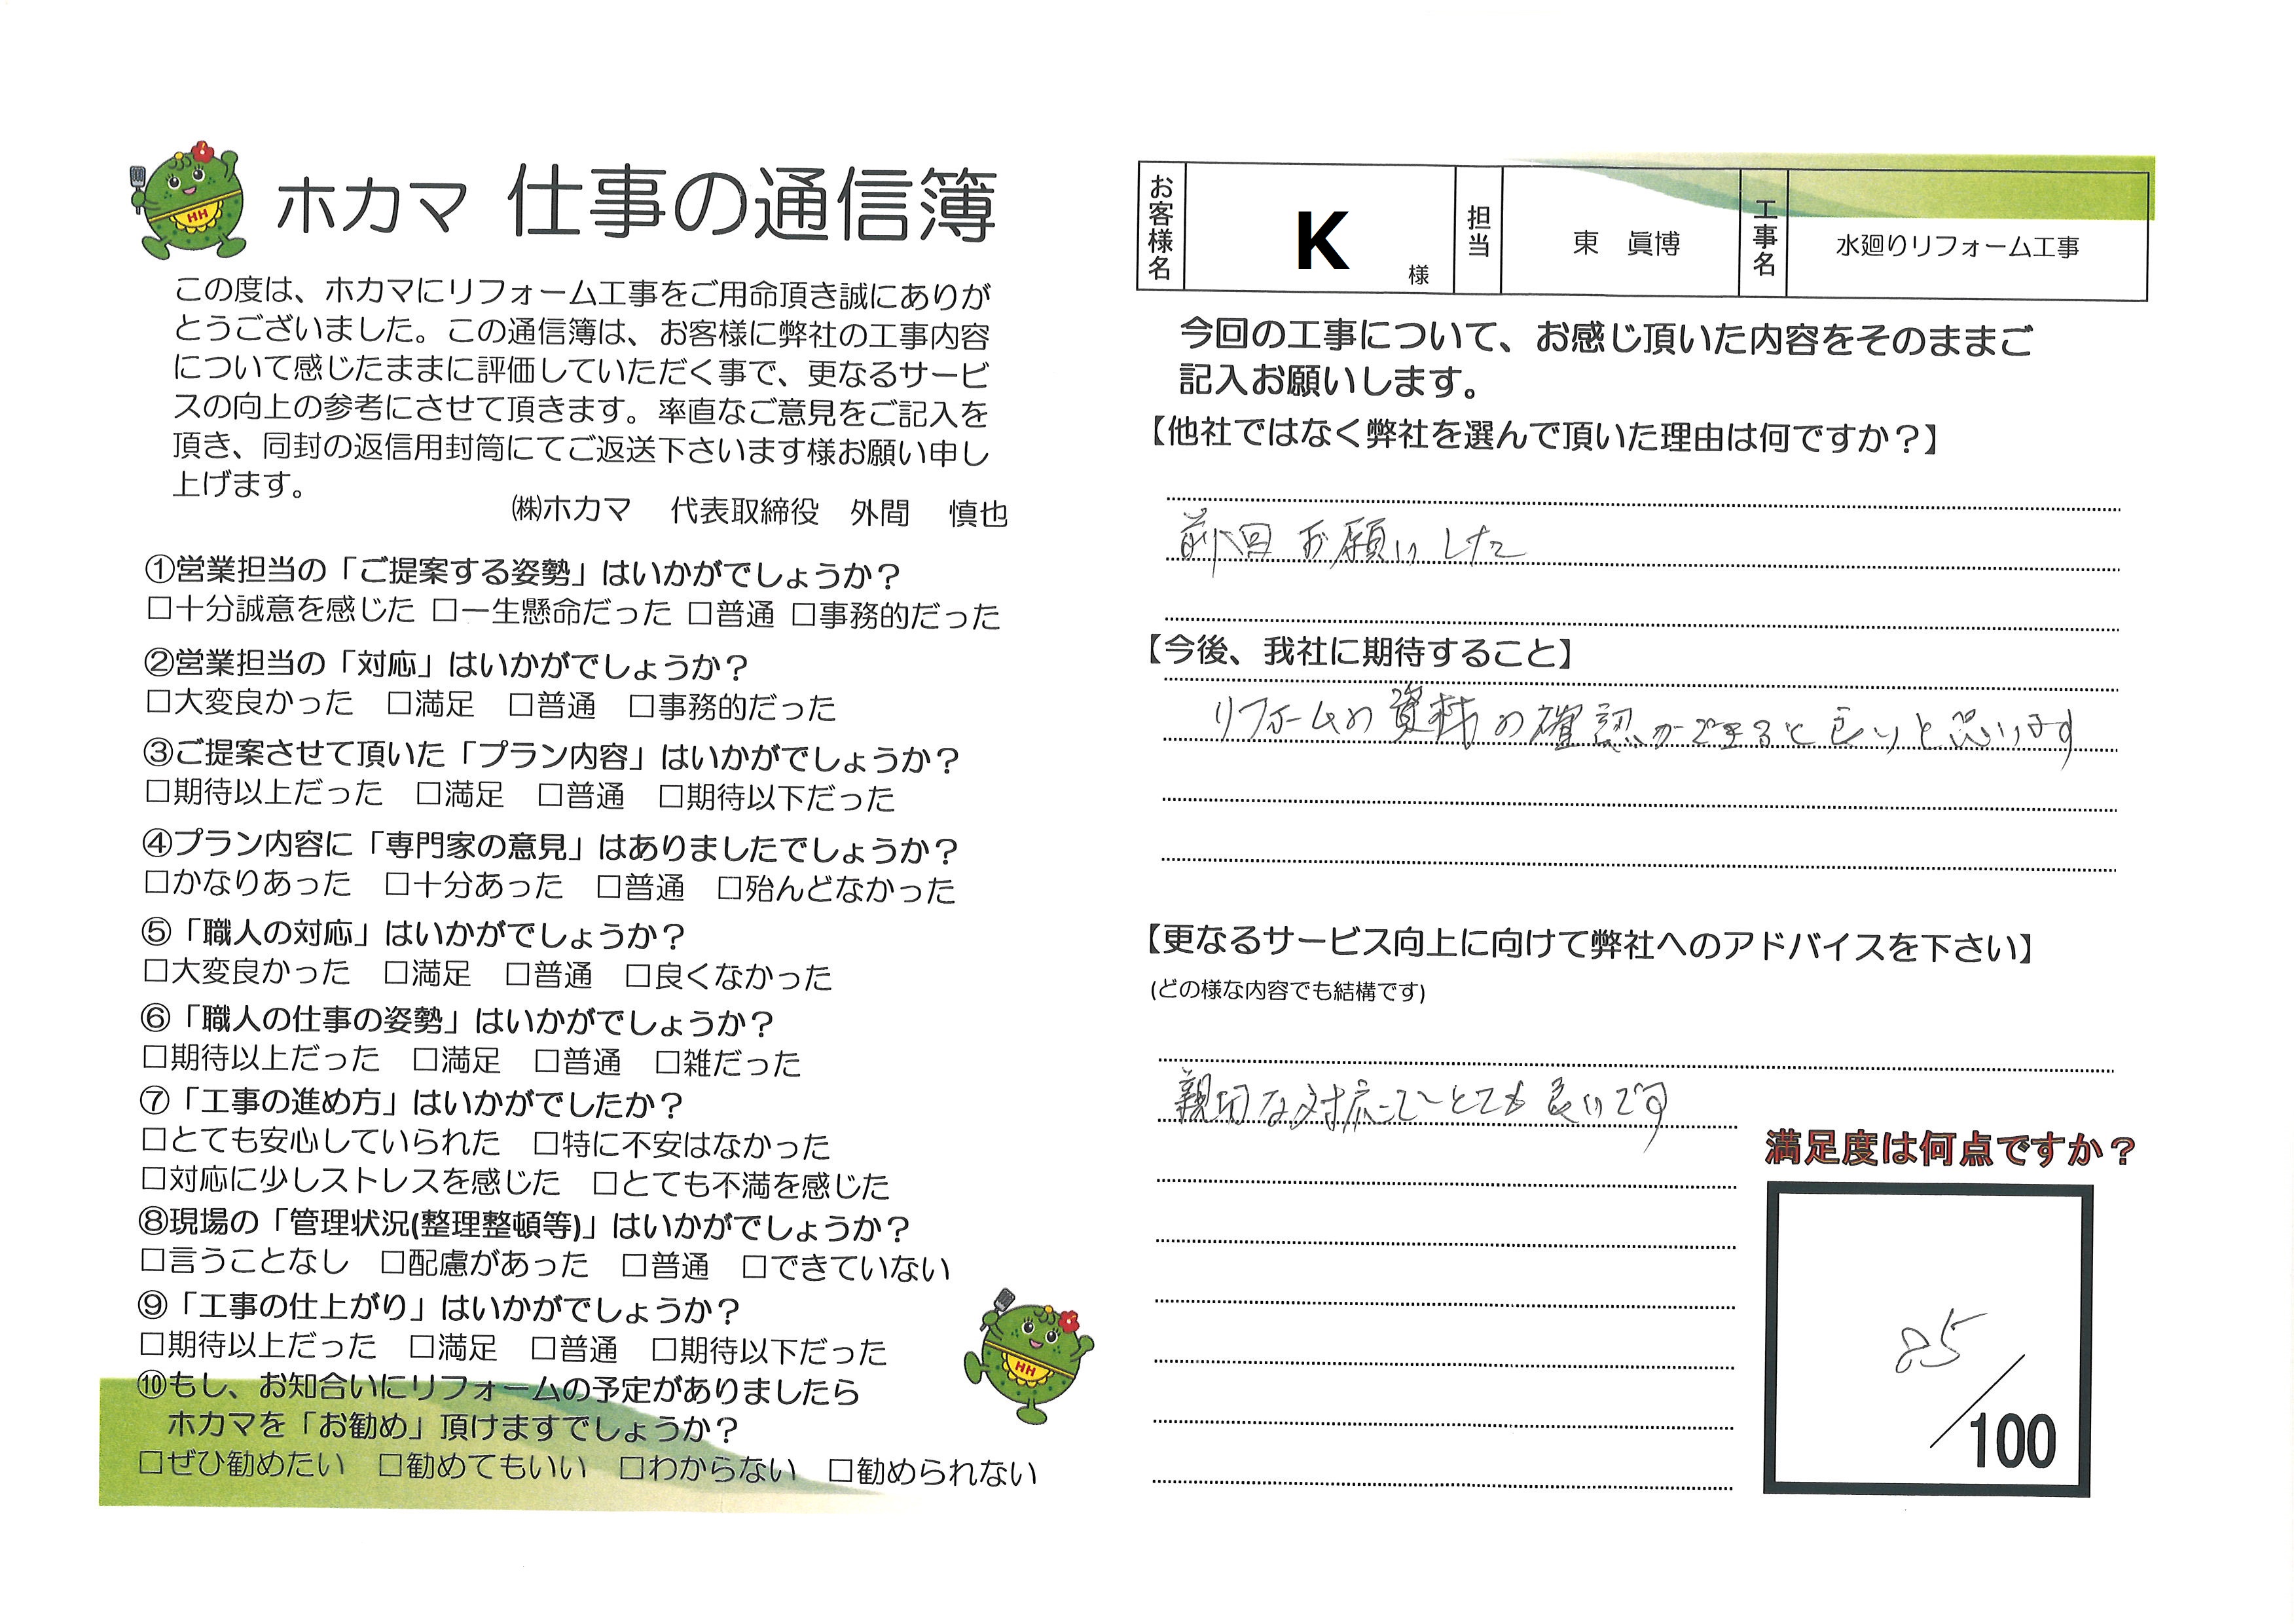 ホカマ 仕事の通信簿
この度は、ホカマにリフォーム工事をご用命頂き誠にありが
とうございました。この通信簿は、お客様に弊社の工事内容
について感じたままに評価していただく事で、更なるサービ
スの向上の参考にさせて頂きます。率直なご意見をご記入を
頂き、同封の返信用封筒にてご返送下さいます様お願い申し
上げます。
㈱ホカマ 代表取締役 外間 慎也
①営業担当の「ご提案する姿勢」はいかがでしょうか？
□十分誠意を感じた □一生懸命だった □普通 □事務的だった
②営業担当の「対応」はいかがでしょうか？
□大変良かった □満足 □普通 □事務的だった
③ご提案させて頂いた「プラン内容」はいかがでしょうか？
□期待以上だった □満足 □普通 □期待以下だった
④プラン内容に「専門家の意見」はありましたでしょうか？
□かなりあった □十分あった □普通 □殆んどなかった
⑤「職人の対応」はいかがでしょうか？
□大変良かった □満足 □普通 □良くなかった
⑥「職人の仕事の姿勢」はいかがでしょうか？
□期待以上だった □満足 □普通 □雑だった
⑦「工事の進め方」はいかがでしたか？
□とても安心していられた □特に不安はなかった
□対応に少しストレスを感じた □とても不満を感じた
⑧現場の「管理状況(整理整頓等)」はいかがでしょうか？
□言うことなし □配慮があった □普通 □できていない
⑨「工事の仕上がり」はいかがでしょうか？
□期待以上だった □満足 □普通 □期待以下だった
⑩もし、お知合いにリフォームの予定がありましたら
ホカマを「お勧め」頂けますでしょうか？
□ぜひ勧めたい □勧めてもいい □わからない □勧められない
お客様名 K 様 担当 東 眞博 工事名 水廻りリフォーム工事
今回の工事について、お感じ頂いた内容をそのままご
記入お願いします。
【他社ではなく弊社を選んで頂いた理由は何ですか？】
前回お願いした
【今後、我社に期待すること】
リフォームの資材の確認ができると良いと思います
【更なるサービス向上に向けて弊社へのアドバイスを下さい】
(どの様な内容でも結構です)
親切な対応でとても良いです
満足度は何点ですか？
85
/100
HH
HH